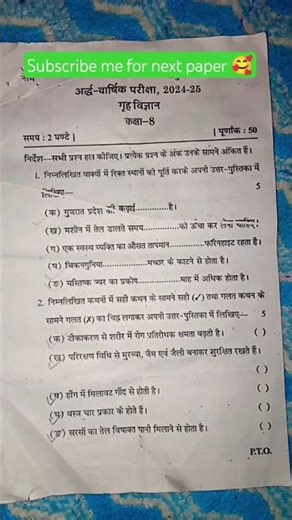 Subscribe me for next paper 🥰
अर्द्ध-वार्षिक परीक्षा, 2024-25
गृह विज्ञान
कक्षा-8
समय : 2 घण्टे |
| पूर्णांक : 50
निर्देश—सभी प्रश्न हल कीजिए। प्रत्येक प्रश्न के अंक उनके सामने अंकित हैं।
1. निम्नलिखित वाक्यों में रिक्त स्थानों को पूर्ति करके अपनी उत्तर-पुस्तिका में
लिखिए— 5
(क) गुजरात प्रदेश की कढ़ाई ............ है।
(ख) मशीन में तेल डालते समय ............ को ऊँचा कर लेना चाहिए।
(ग) एक स्वस्थ व्यक्ति का औसत तापमान ............ फारेनहाइट रहता है।
(घ) चिकनगुनिया ............ मच्छर के काटने से होता है।
(ङ) मस्तिष्क ज्वर का प्रकोप ............ माह में अधिक होता है।
2. निम्नलिखित कथनों में सही कथन के सामने सही (✓) तथा गलत कथन के
सामने गलत (✗) का चिह्न लगाकर अपनी उत्तर-पुस्तिका में लिखिए— 5
(क) टीकाकरण से शरीर में रोग प्रतिरोधक क्षमता बढ़ती है। ( )
(ख) परिरक्षण विधि से मुरब्बा, जैम एवं जैली बनाकर सुरक्षित रखते हैं।
( )
(ग) हींग में मिलावट गोंद से होती है। ( )
(घ) वस्त्र चार प्रकार के होते हैं। ( )
(ङ) सरसों का तेल विषाक्त पानी मिलाने से होता है। ( )
P.T.O.